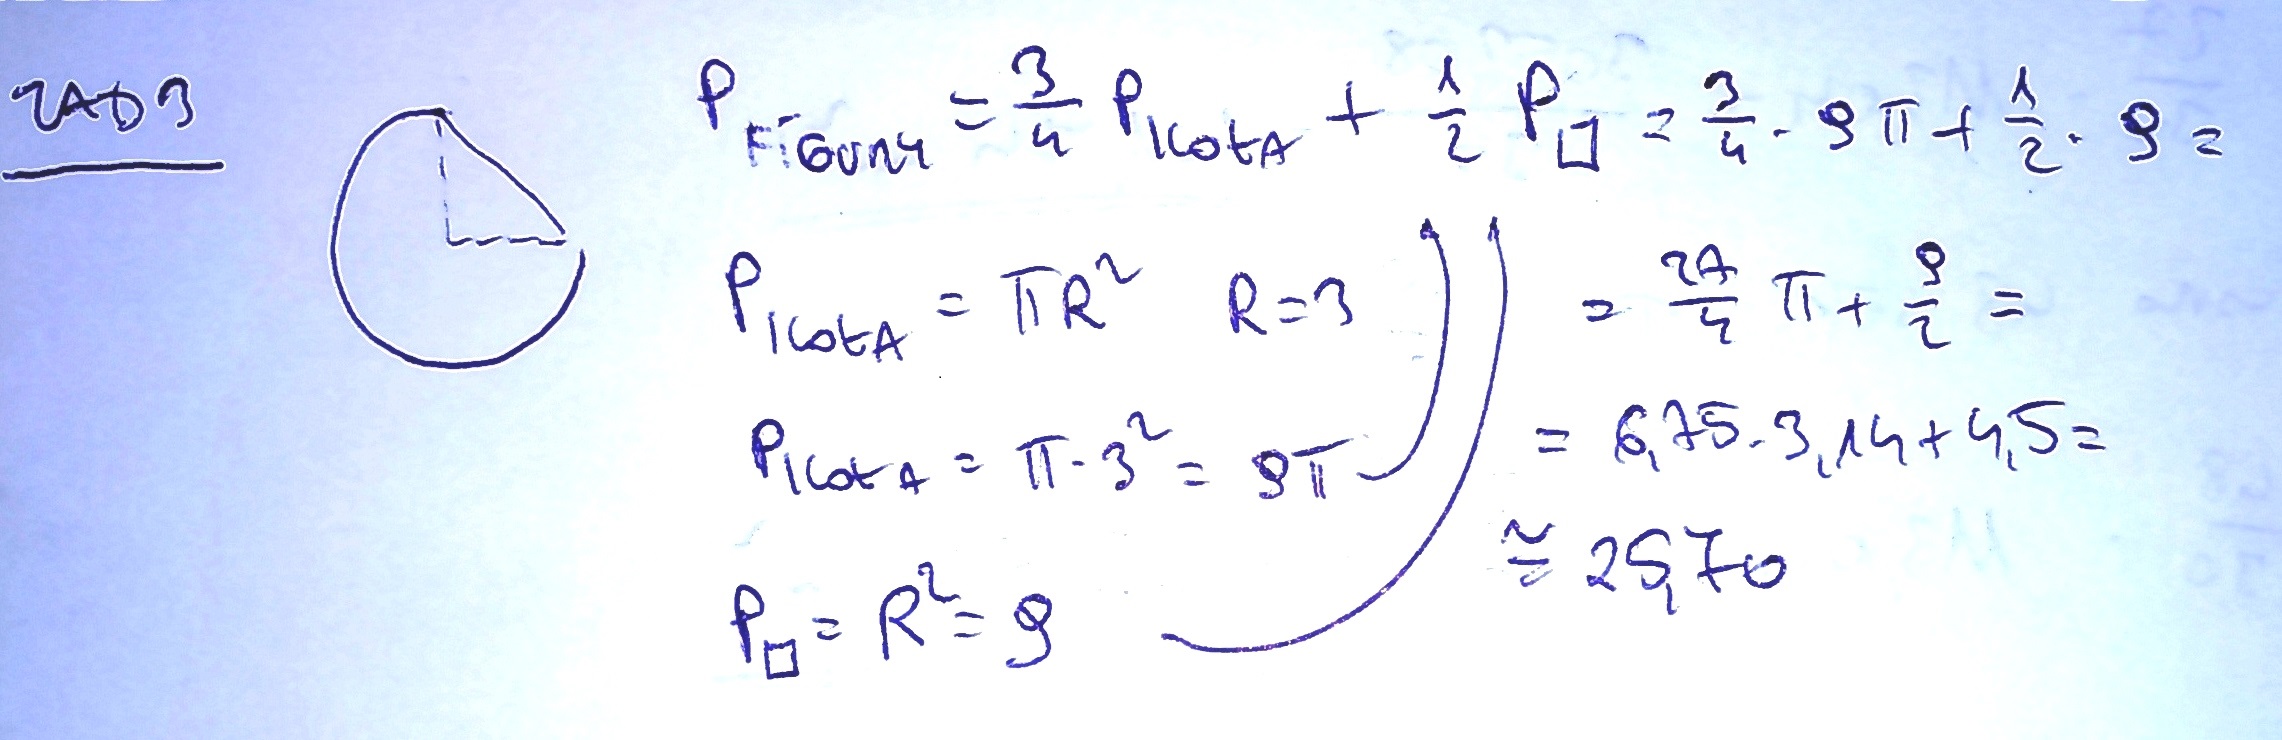 ZAD 3
P FIGURY = 3/4 P KOŁA + 1/2 P□ = 3/4 · 9π + 1/2 · 9 =
P KOŁA = πR² R=3
= 27/4 π + 9/2 =
P KOŁA = π·3² = 9π
= 6,75·3,14+4,5=
≅ 25,70
P□ = R² = 9